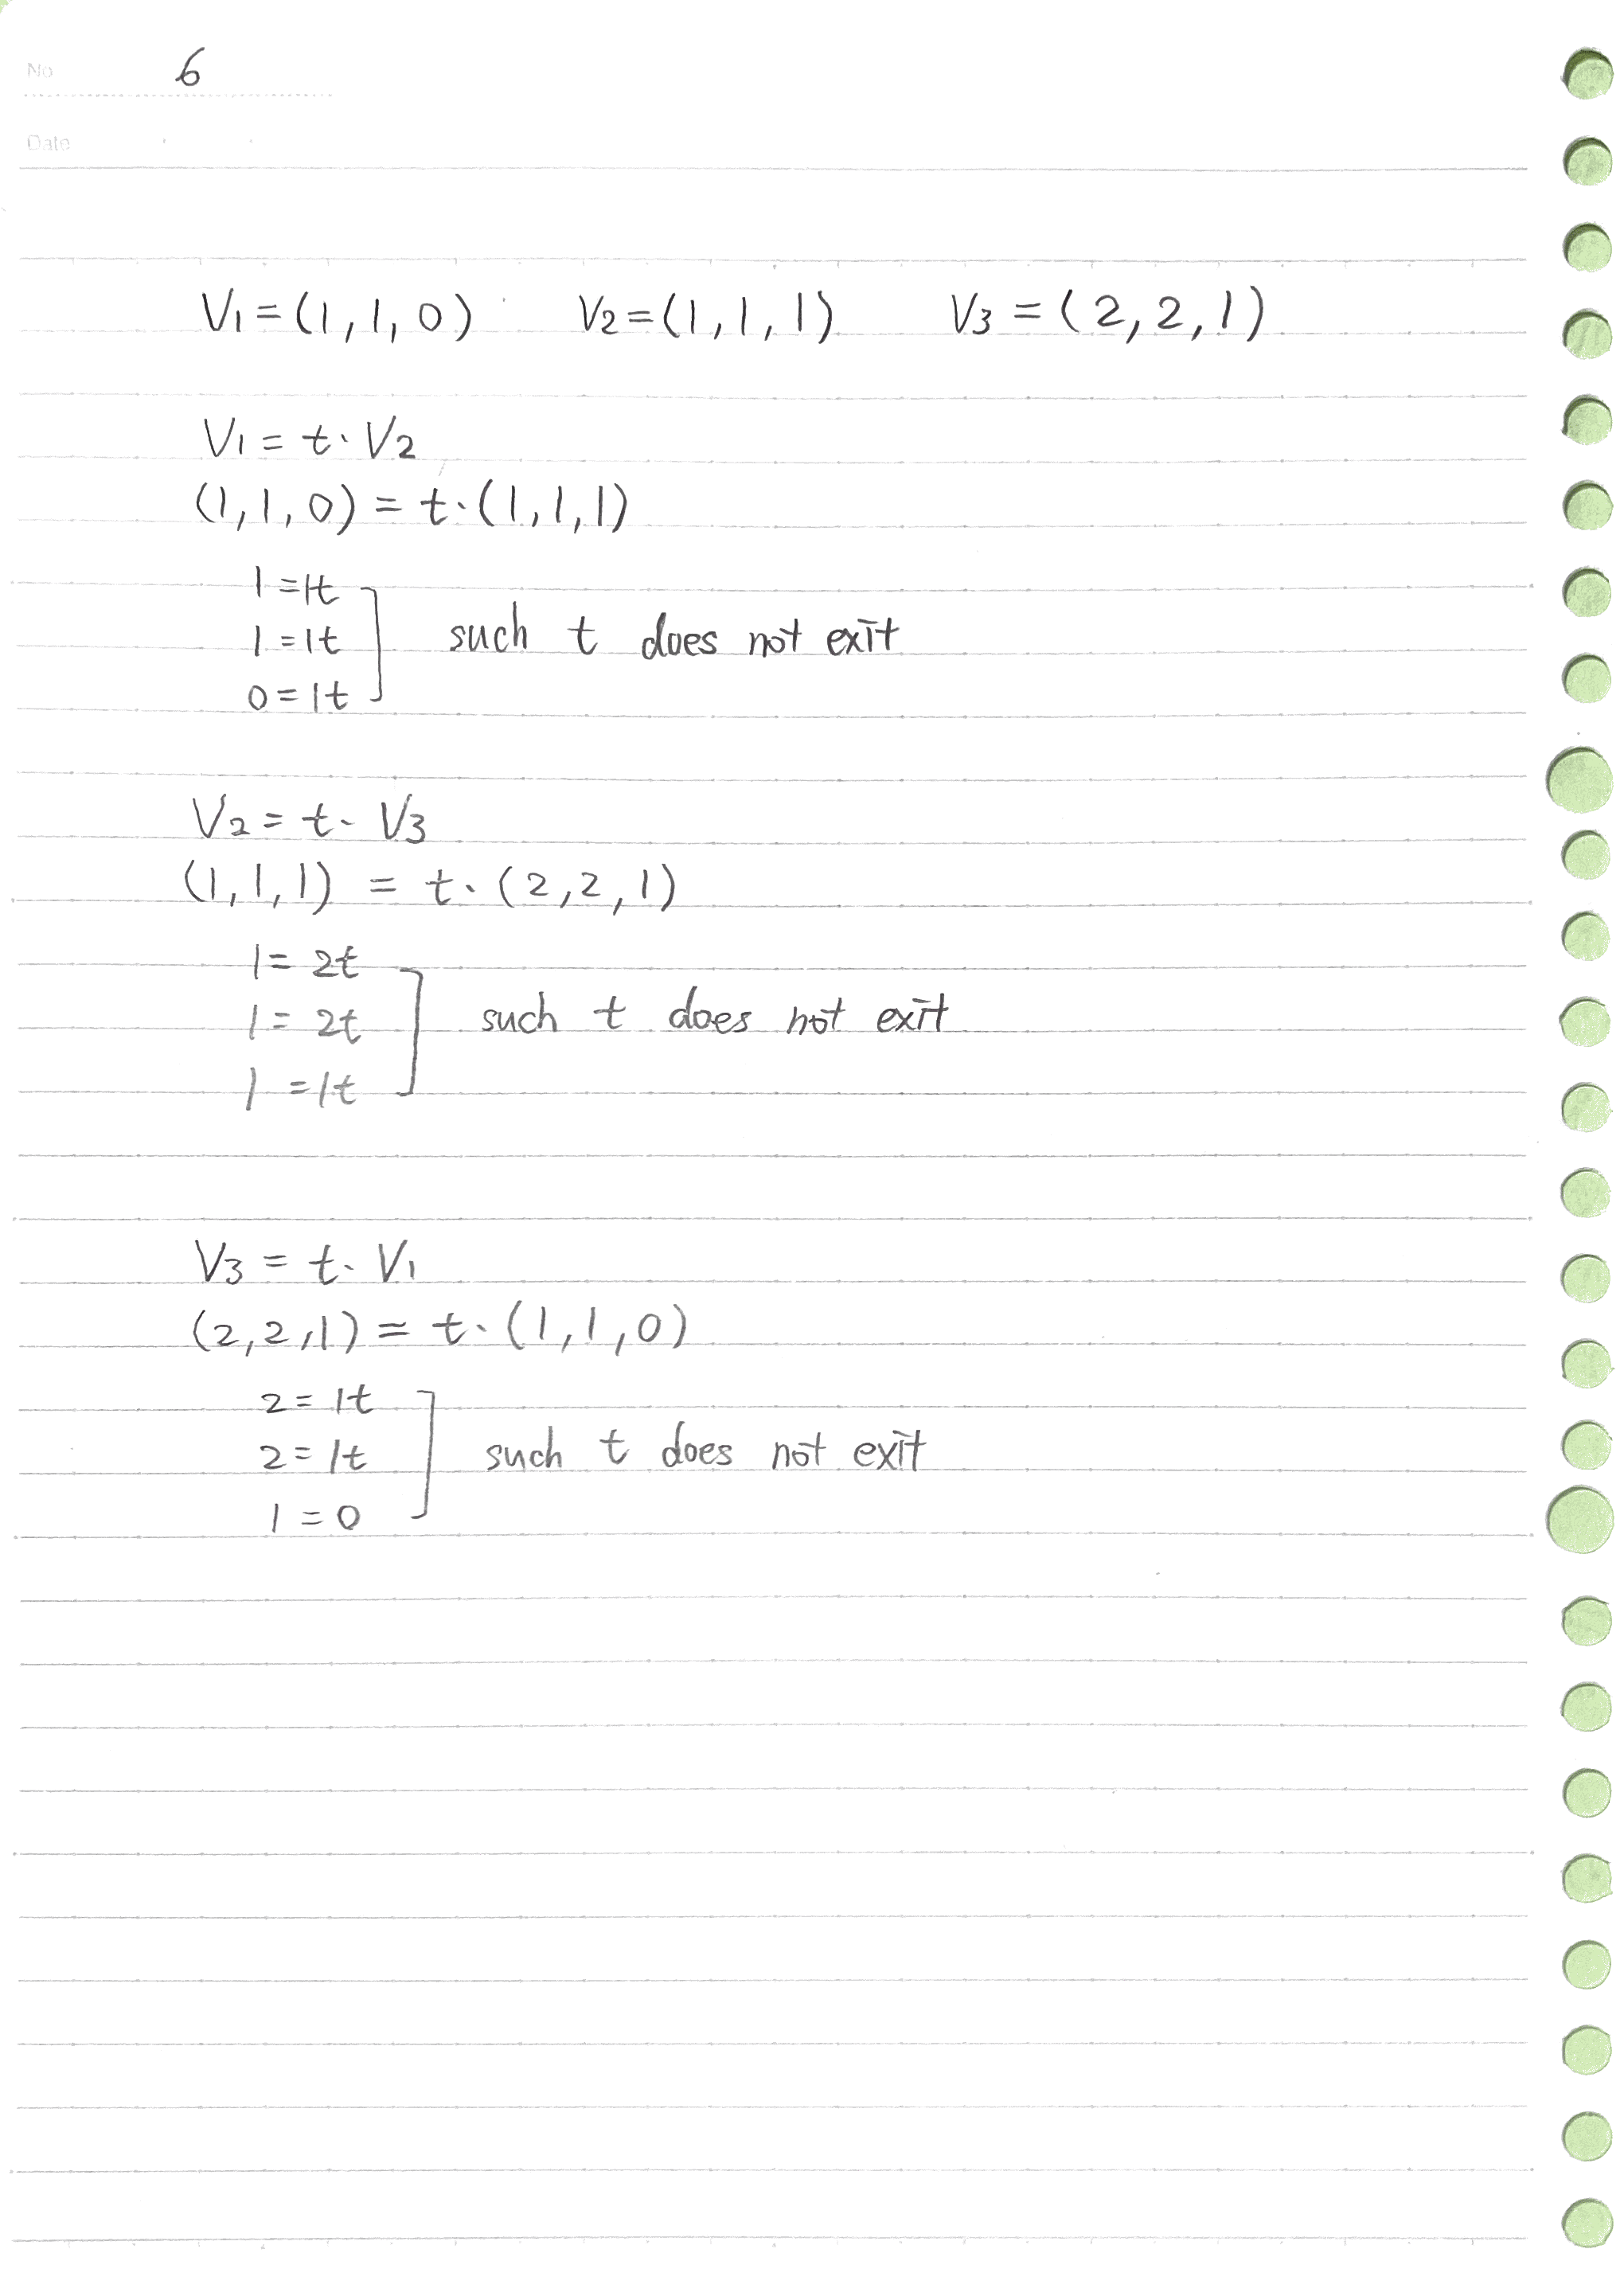 No 6
Date
V1 = (1, 1, 0) V2 = (1, 1, 1) V3 = (2, 2, 1)
V1 = t · V2
(1, 1, 0) = t · (1, 1, 1)
1 = 1t
1 = 1t such t does not exit
0 = 1t
V2 = t · V3
(1, 1, 1) = t · (2, 2, 1)
1 = 2t
1 = 2t such t does not exit
1 = 1t
V3 = t · V1
(2, 2, 1) = t · (1, 1, 0)
2 = 1t
2 = 1t such t does not exit
1 = 0